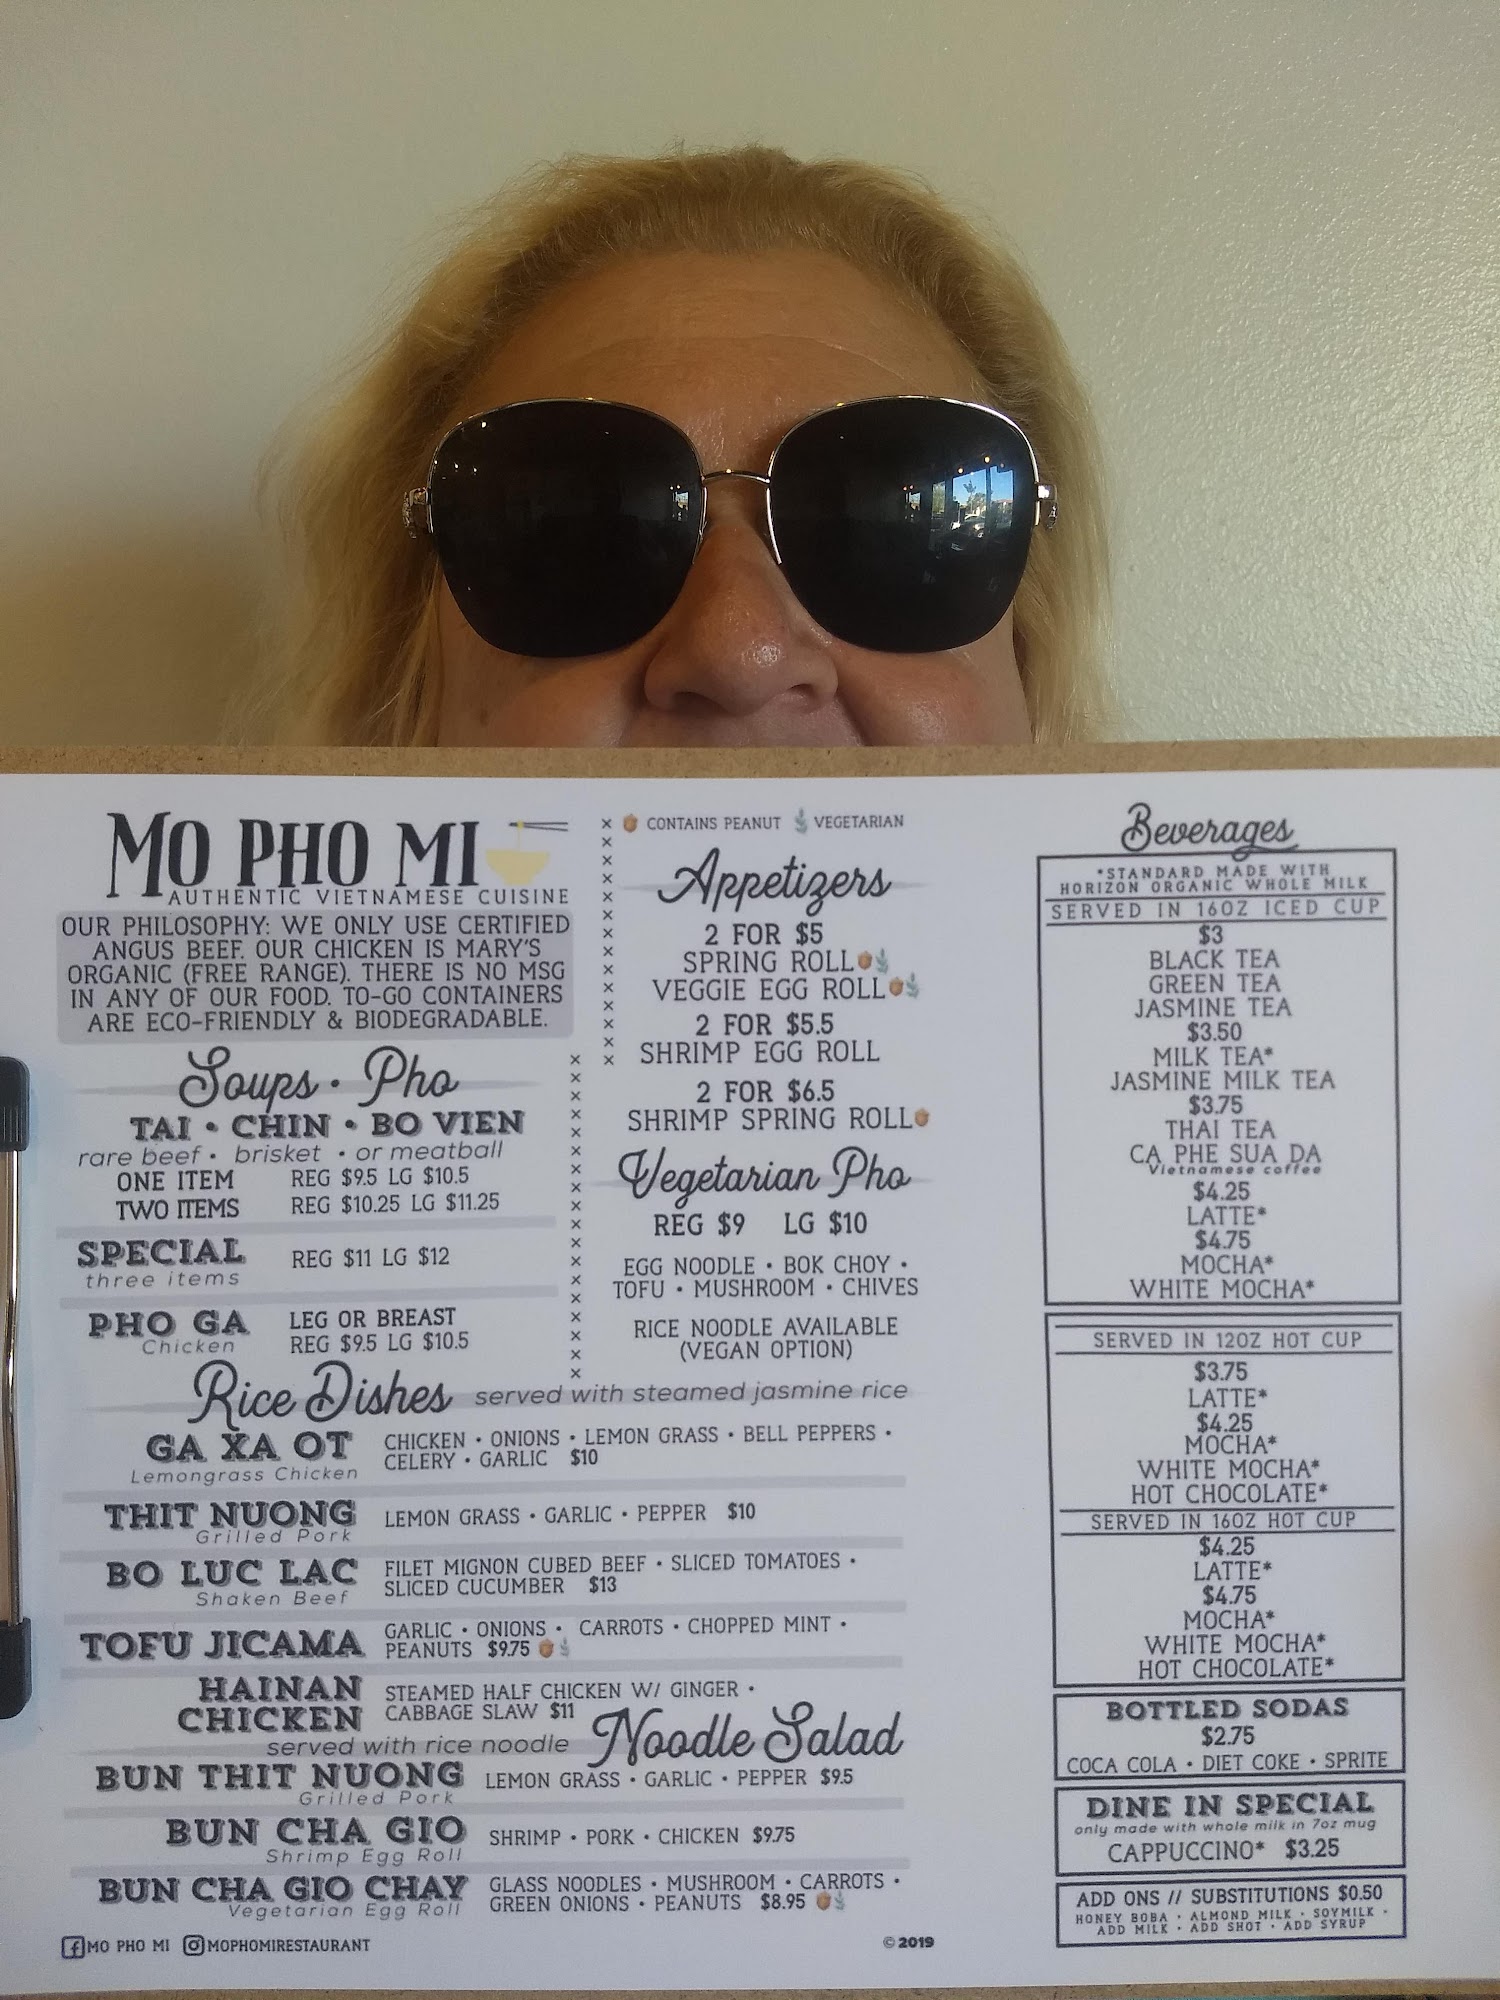 MO PHO MI
AUTHENTIC VIETNAMESE CUISINE
OUR PHILOSOPHY: WE ONLY USE CERTIFIED
ANGUS BEEF. OUR CHICKEN IS MARY'S
ORGANIC (FREE RANGE). THERE IS NO MSG
IN ANY OF OUR FOOD. TO-GO CONTAINERS
ARE ECO-FRIENDLY & BIODEGRADABLE.
Soups · Pho
TAI • CHIN • BO VIEN
rare beef • brisket • or meatball
ONE ITEM REG $9.5 LG $10.5
TWO ITEMS REG $10.25 LG $11.25
SPECIAL REG $11 LG $12
three items
PHO GA LEG OR BREAST
Chicken REG $9.5 LG $10.5
CONTAINS PEANUT VEGETARIAN
Appetizers
2 FOR $5
SPRING ROLL
VEGGIE EGG ROLL
2 FOR $5.5
SHRIMP EGG ROLL
2 FOR $6.5
SHRIMP SPRING ROLL
Vegetarian Pho
REG $9 LG $10
EGG NOODLE • BOK CHOY •
TOFU • MUSHROOM • CHIVES
RICE NOODLE AVAILABLE
(VEGAN OPTION)
Rice Dishes served with steamed jasmine rice
GA XA OT CHICKEN • ONIONS • LEMON GRASS • BELL PEPPERS •
Lemongrass Chicken CELERY • GARLIC $10
THIT NUONG LEMON GRASS • GARLIC • PEPPER $10
Grilled Pork
BO LUC LAC FILET MIGNON CUBED BEEF • SLICED TOMATOES •
Shaken Beef SLICED CUCUMBER $13
TOFU JICAMA GARLIC • ONIONS • CARROTS • CHOPPED MINT •
PEANUTS $9.75
HAINAN STEAMED HALF CHICKEN W/ GINGER •
CHICKEN CABBAGE SLAW $11
served with rice noodle Noodle Salad
BUN THIT NUONG LEMON GRASS • GARLIC • PEPPER $9.5
Grilled Pork
BUN CHA GIO SHRIMP • PORK • CHICKEN $9.75
Shrimp Egg Roll
BUN CHA GIO CHAY GLASS NOODLES • MUSHROOM • CARROTS •
Vegetarian Egg Roll GREEN ONIONS • PEANUTS $8.95
MO PHO MI MOPHOMIRESTAURANT
© 2019
Beverages
*STANDARD MADE WITH
HORIZON ORGANIC WHOLE MILK
SERVED IN 16OZ ICED CUP
$3
BLACK TEA
GREEN TEA
JASMINE TEA
$3.50
MILK TEA*
JASMINE MILK TEA
$3.75
THAI TEA
CA PHE SUA DA
Vietnamese coffee
$4.25
LATTE*
$4.75
MOCHA*
WHITE MOCHA*
SERVED IN 12OZ HOT CUP
$3.75
LATTE*
$4.25
MOCHA*
WHITE MOCHA*
HOT CHOCOLATE*
SERVED IN 16OZ HOT CUP
$4.25
LATTE*
$4.75
MOCHA*
WHITE MOCHA*
HOT CHOCOLATE*
BOTTLED SODAS
$2.75
COCA COLA • DIET COKE • SPRITE
DINE IN SPECIAL
only made with whole milk in 7oz mug
CAPPUCCINO* $3.25
ADD ONS // SUBSTITUTIONS $0.50
HONEY BOBA • ALMOND MILK • SOYMILK •
ADD MILK • ADD SHOT • ADD SYRUP